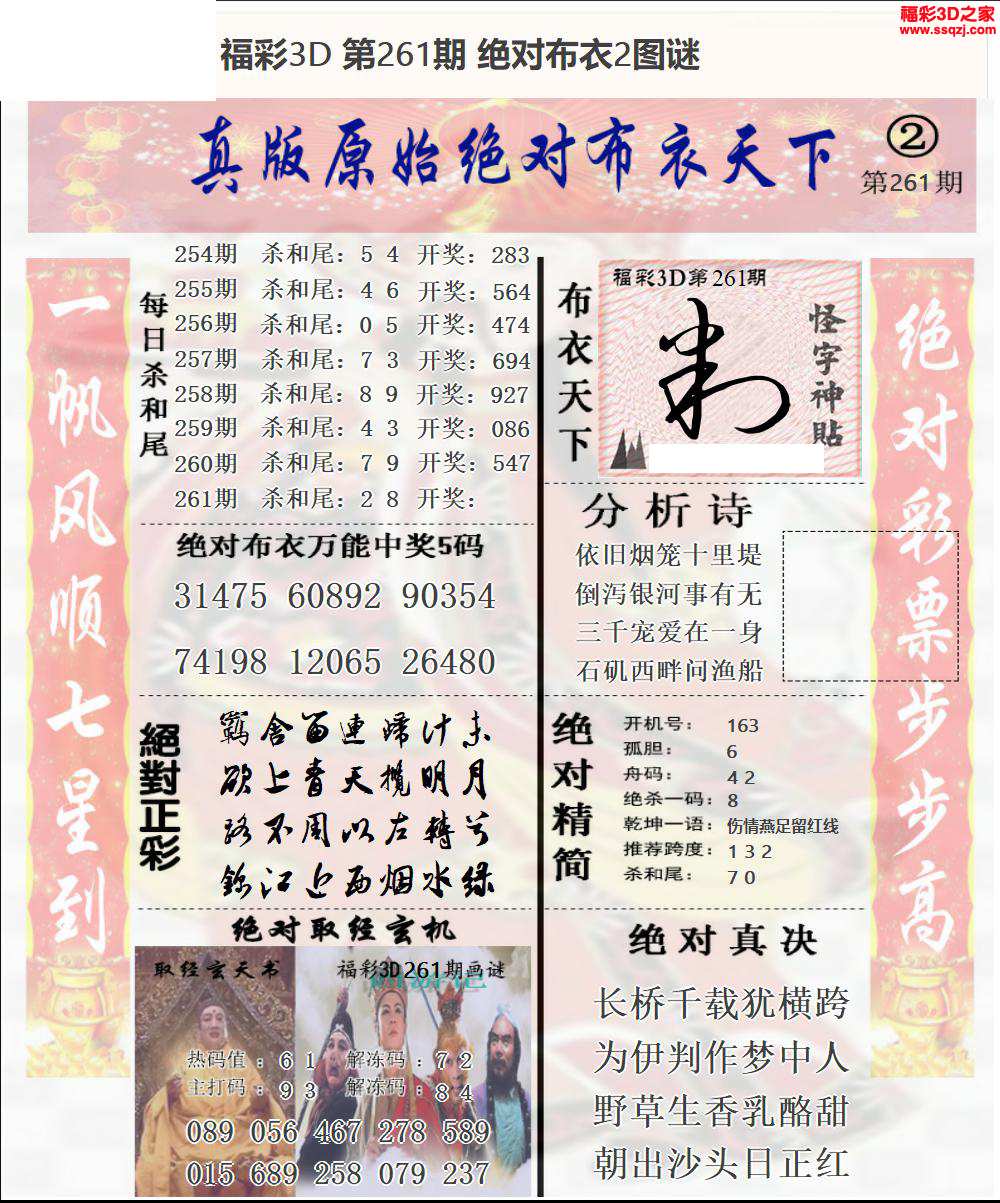 福彩3D之家
www.ssqzj.com
福彩3D 第261期 绝对布衣2图谜
真版原始绝对布衣天下
②
第261期
一帆风顺七星到
每日杀和尾
254期 杀和尾：5 4 开奖：283
255期 杀和尾：4 6 开奖：564
256期 杀和尾：0 5 开奖：474
257期 杀和尾：7 3 开奖：694
258期 杀和尾：8 9 开奖：927
259期 杀和尾：4 3 开奖：086
260期 杀和尾：7 9 开奖：547
261期 杀和尾：2 8 开奖：
绝对布衣万能中奖5码
31475 60892 90354
74198 12065 26480
絕對正彩
羁舍留連歸计未
欲上青天揽明月
路不周以左轉兮
锦江近西烟水绿
绝对取经玄机
取经玄天书
福彩3D261期画谜
热码值：6 1 解冻码：7 2
主打码：9 3 解冻码：8 4
089 056 467 278 589
015 689 258 079 237
布衣天下
福彩3D第261期
怪字神貼
分析诗
依旧烟笼十里堤
倒泻银河事有无
三千宠爱在一身
石矶西畔问渔船
绝对精简
开机号： 163
孤胆： 6
舟码： 4 2
绝杀一码：8
乾坤一语：伤情燕足留红线
推荐跨度：1 3 2
杀和尾： 7 0
绝对真决
长桥千载犹横跨
为伊判作梦中人
野草生香乳酪甜
朝出沙头日正红
绝对彩票步步高